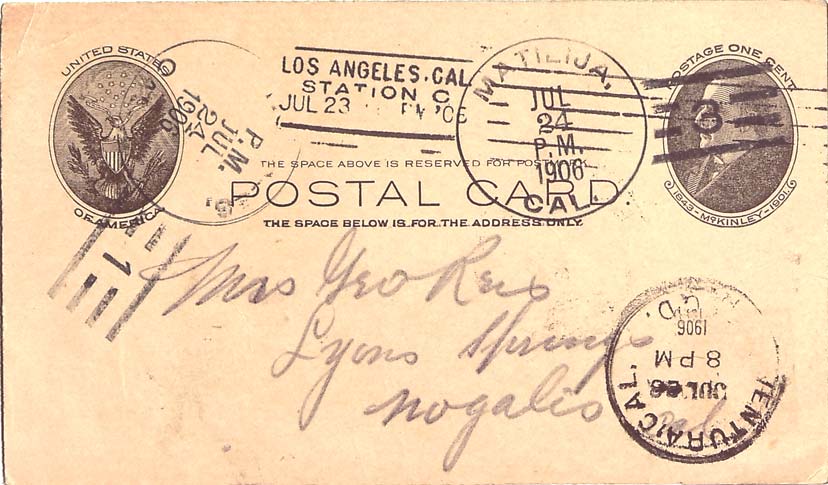 UNITED STATES
OF AMERICA
1906
JUL 24
P.M.
1
LOS ANGELES, CAL.
STATION C
JUL 23 PM '06
MATILIJA,
JUL
24
P.M.
1906
CAL.
3
POSTAGE ONE CENT
1843-McKINLEY-1901
THE SPACE ABOVE IS RESERVED FOR
POSTAL CARD
THE SPACE BELOW IS FOR THE ADDRESS ONLY.
Mrs Geo Reis
Lyons Springs
Nogalis
Cal
VENTURA, CAL.
JUL
8 PM
1906
REC'D.